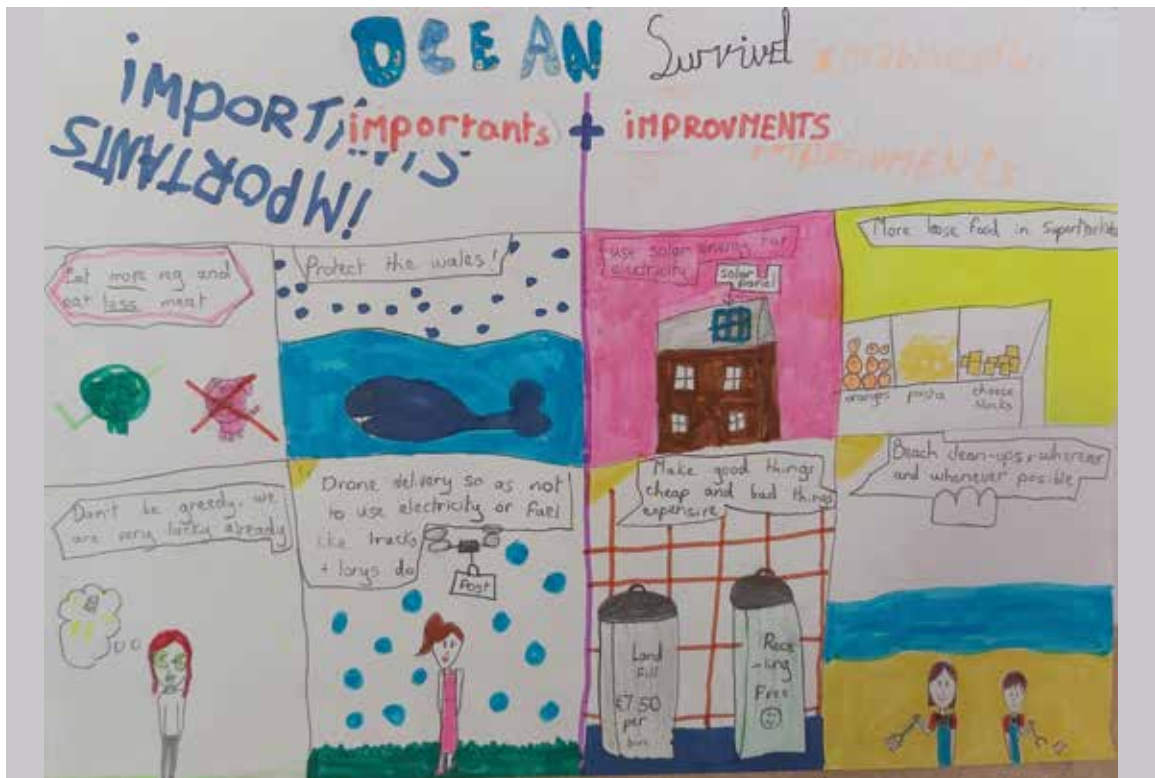 OCEAN Survivel
IMPORTANTS
IMPORTANTS
importants + iMPROVMENTS
Eat more veg and
eat less meat
Protect the wales!
use solar energy for
electricity
solar
panel
More loose food in Supermarkets
oranges pasta cheese
blocks
Don't be greedy, we
are very lucky already
Drone delivery so as not
to use electricity or fuel
like trucks
+ lorys do
Post
Make good things
cheap and bad things
expensive
Land
Fill
€7.50
per
bin
Recc
-ling
Free
Beach clean-ups wherever
and whenever posible